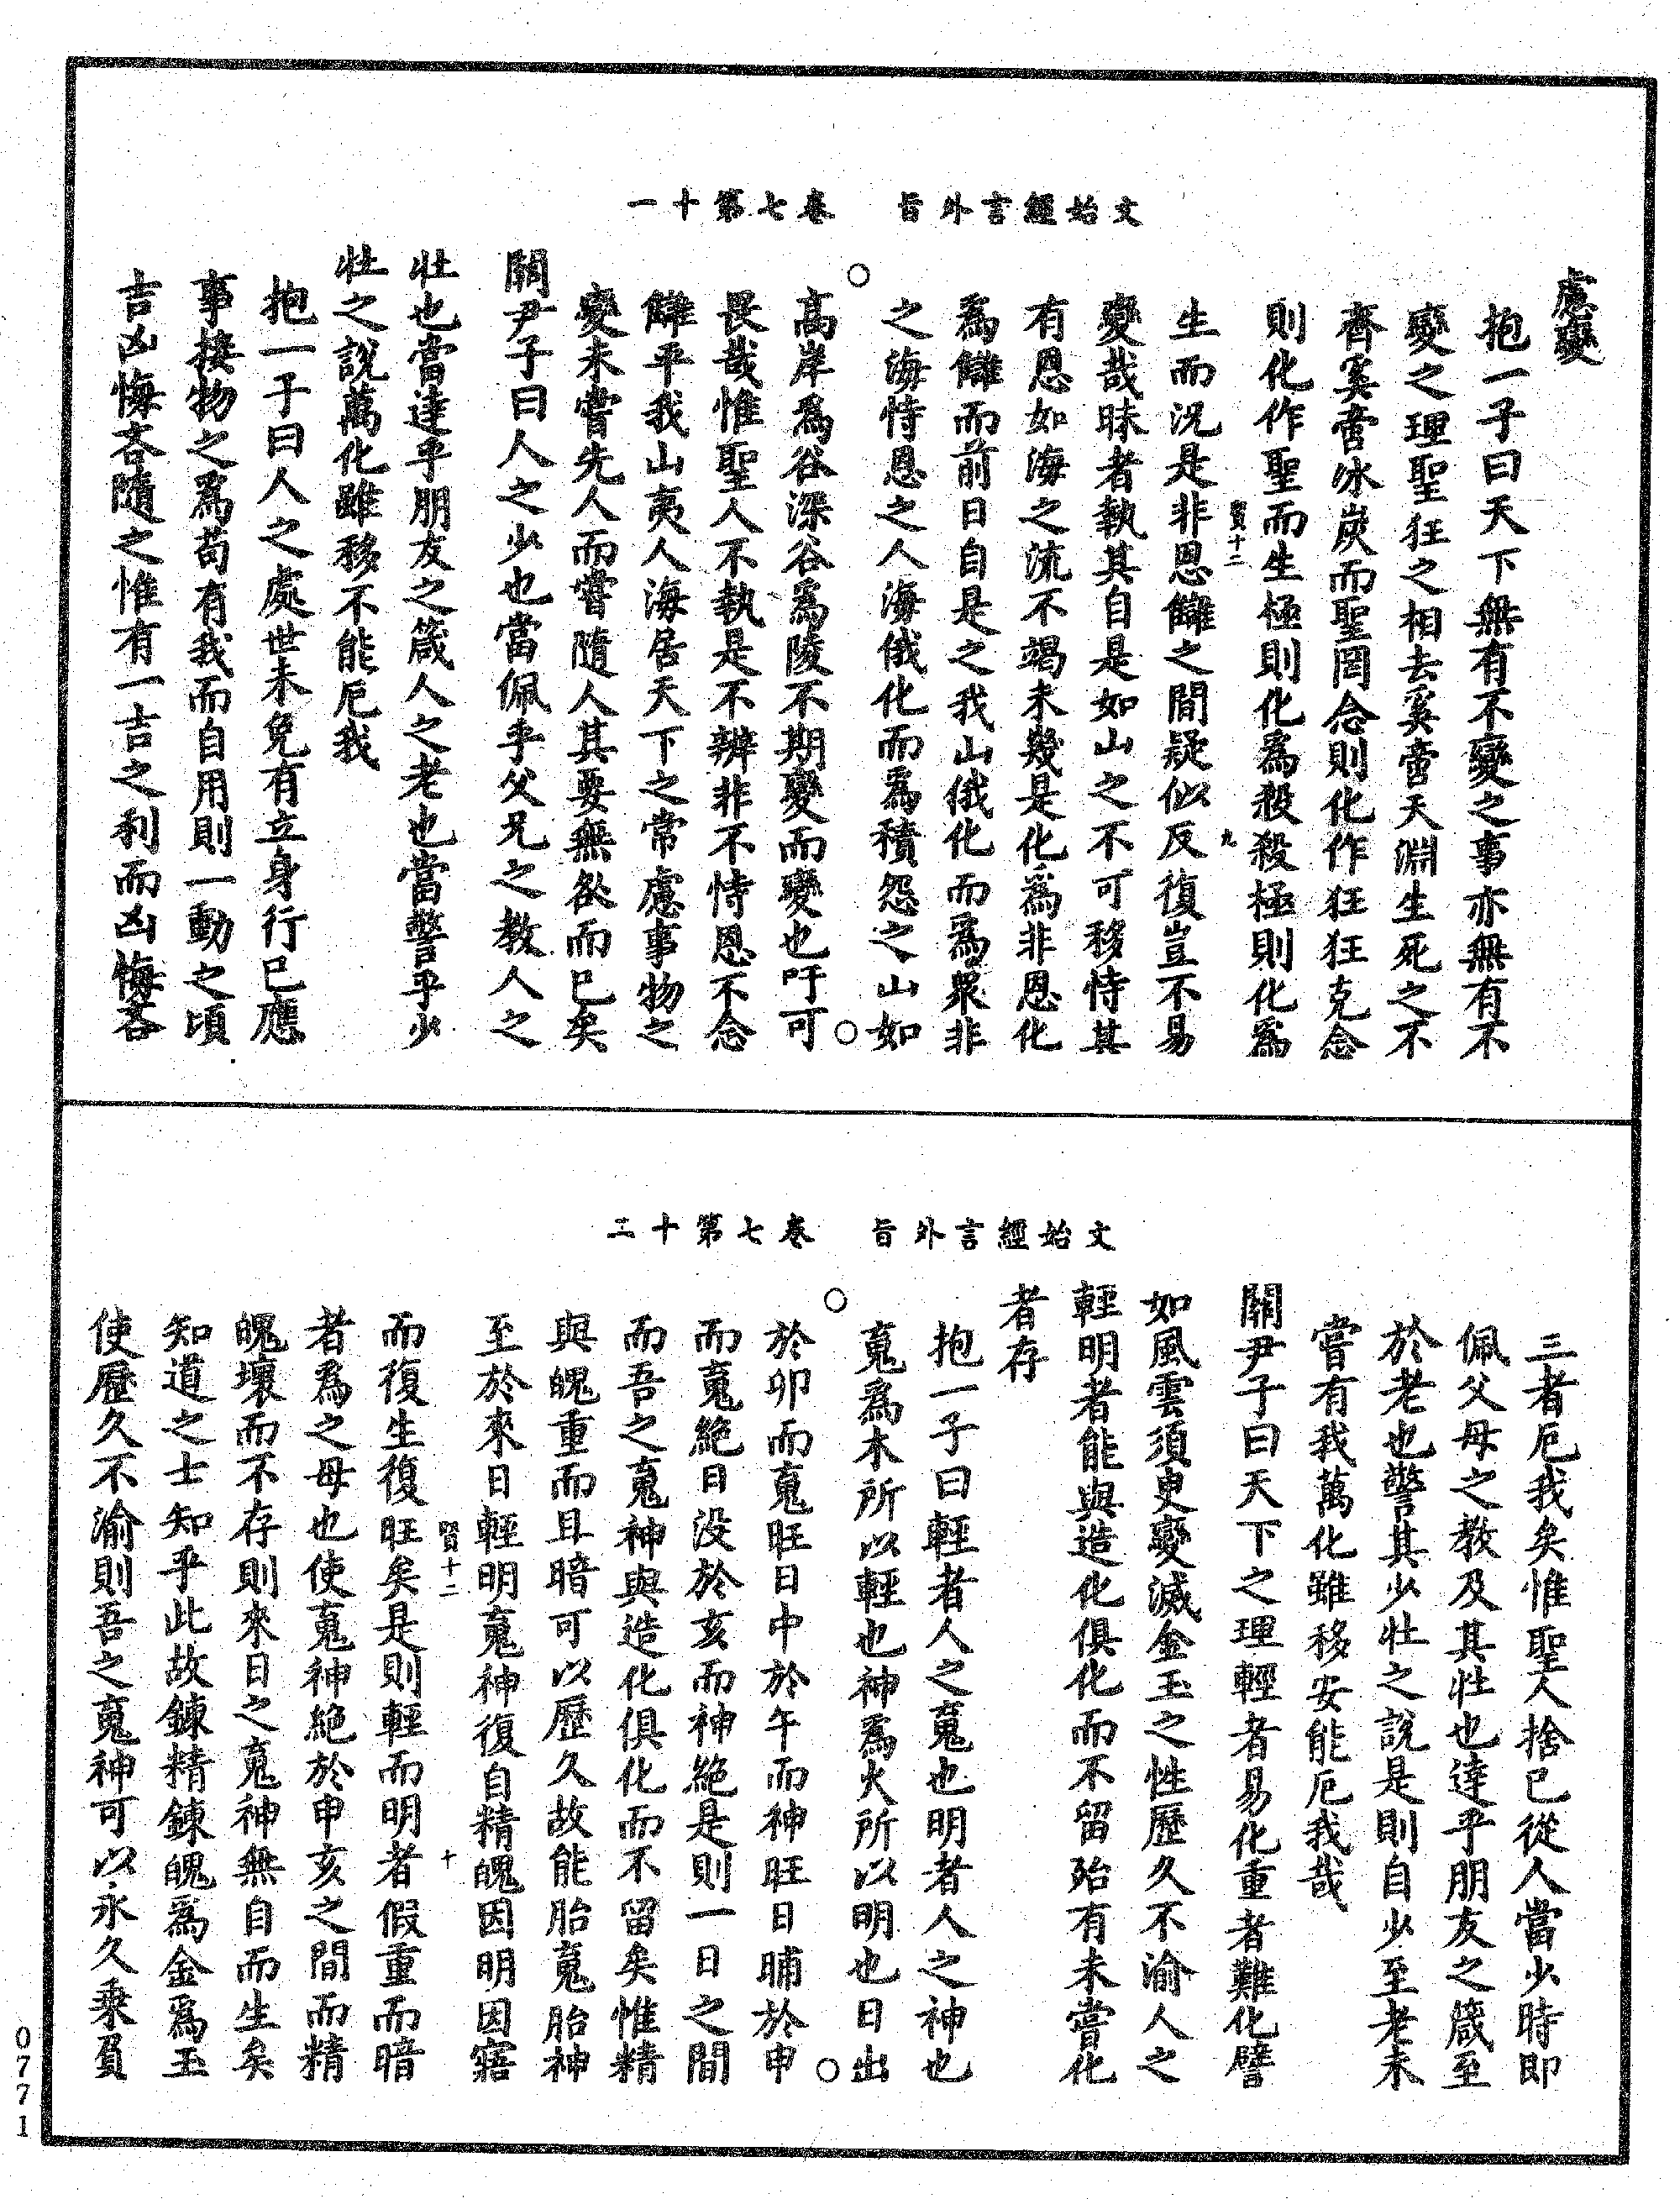 文始經言外旨　卷七第十一
慮變
抱一子曰天下無有不變之事亦無有不
變之理聖狂之相去奚啻天淵生死之不
齊奚啻冰炭而聖罔念則化作狂狂克念
則化作聖而生極則化爲殺殺極則化爲
賢十二　九
生而況是非恩讎之間疑似反復豈不易
變哉昧者執其自是如山之不可移恃其
有恩如海之流不竭未幾是化爲非恩化
爲讎而前日自是之我山俄化而爲衆非
之海恃恩之人海俄化而爲積怨之山如
○　○
高岸爲谷深谷爲陵不期變而變也吁可
畏哉惟聖人不執是不辨非不恃恩不念
讎平我山夷人海居天下之常慮事物之
變未嘗先人而嘗隨人其要無咎而已矣
關尹子曰人之少也當佩乎父兄之教人之
壯也當達乎朋友之箴人之老也當警乎少
壯之說萬化雖移不能厄我
抱一子曰人之處世未免有立身行已應
事接物之爲苟有我而自用則一動之頃
吉凶悔吝隨之惟有一吉之利而凶悔吝
文始經言外旨　卷七第十二
三者厄我矣惟聖人捨已從人當少時即
佩父母之教及其壯也達乎朋友之箴至
於老也警其少壯之說是則自少至老未
嘗有我萬化雖移安能厄我哉
關尹子曰天下之理輕者易化重者難化譬
如風雲須臾變滅金玉之性歷久不渝人之
輕明者能與造化俱化而不留殆有未嘗化
者存
抱一子曰輕者人之䰟也明者人之神也
䰟爲木所以輕也神爲火所以明也日出
○　○
於卯而䰟旺日中於午而神旺日晡於申
而䰟絕日没於亥而神絕是則一日之間
而吾之䰟神與造化俱化而不留矣惟精
與魄重而且暗可以歷久故能胎䰟胎神
至於來日輕明䰟神復自精魄因明因寤
賢十二　十
而復生復旺矣是則輕而明者假重而暗
者爲之母也使䰟神絕於申亥之間而精
魄壞而不存則來日之䰟神無自而生矣
知道之士知乎此故鍊精鍊魄爲金爲玉
使歷久不渝則吾之䰟神可以永久乘負
0771